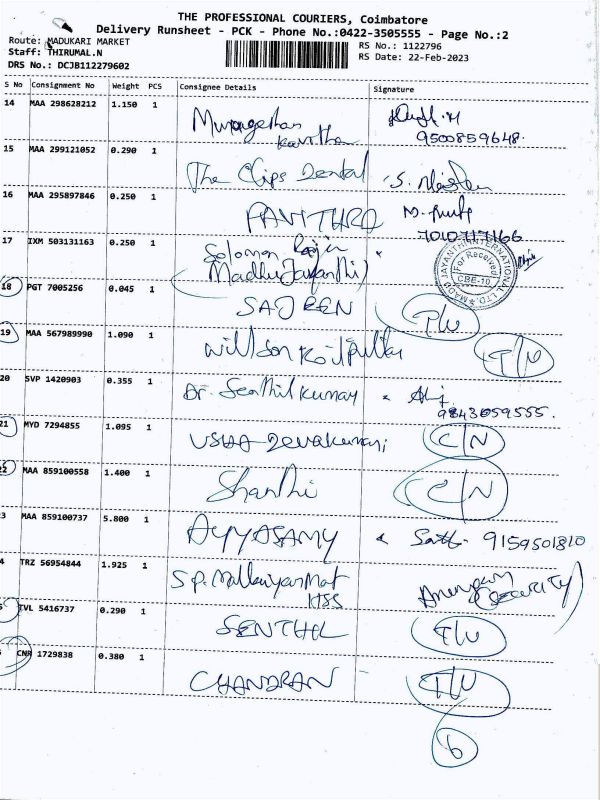 THE PROFESSIONAL COURIERS, Coimbatore
Delivery Runsheet - PCK - Phone No.:0422-3505555 - Page No.:2
Route: MADUKARI MARKET
RS No.: 1122796
Staff: THIRUMAL.N
RS Date: 22-Feb-2023
DRS No.: DCJB112279602
S No Consignment No Weight PCS Consignee Details Signature
14 MAA 298628212 1.150 1 Murugeshan
Kavitha
9500859648.
15 MAA 299121052 0.290 1 The Clips Dental
16 MAA 295897846 0.250 1 PAVITHRA
17 IXM 503131163 0.250 1 Solomon
Madhu Jayanthi)
MADHU JAYANTHI INTERNATIONAL LTD.
For Received
CBE-10
18 PGT 7005256 0.045 1 SAJREN T/U
19 MAA 567989990 1.090 1 Willson T/U
20 SVP 1420903 0.355 1 Dr. Senthil Kumar
9843059555.
21 MYD 7294855 1.095 1 USHA Devakumari C/N
22 MAA 859100558 1.400 1 Shanthi C/N
3 MAA 859100737 5.800 1 AYYASAMY 9159501810
4 TRZ 56954844 1.925 1 S.P. (Security)
5 IVL 5416737 0.290 1 SENTHIL T/U
CNR 1729838 0.380 1 CHANDRAN T/U
6